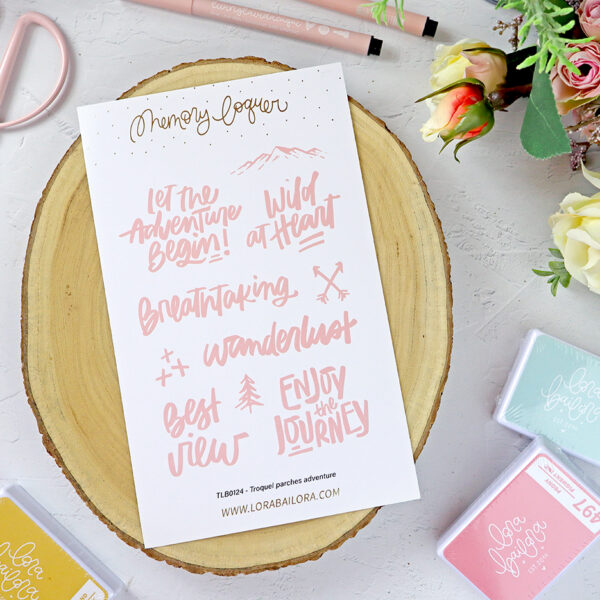 Memory Loquer
Let the
Adventure
Begin!
Wild
at Heart
Breathtaking
wanderlust
Best
view
ENJOY
the
JOURNEY
TLB0124 - Troquel parches adventure
WWW.LORABAILORA.COM
lora
bailora
lora
bailora
EST. 2014
497
lora
bailora